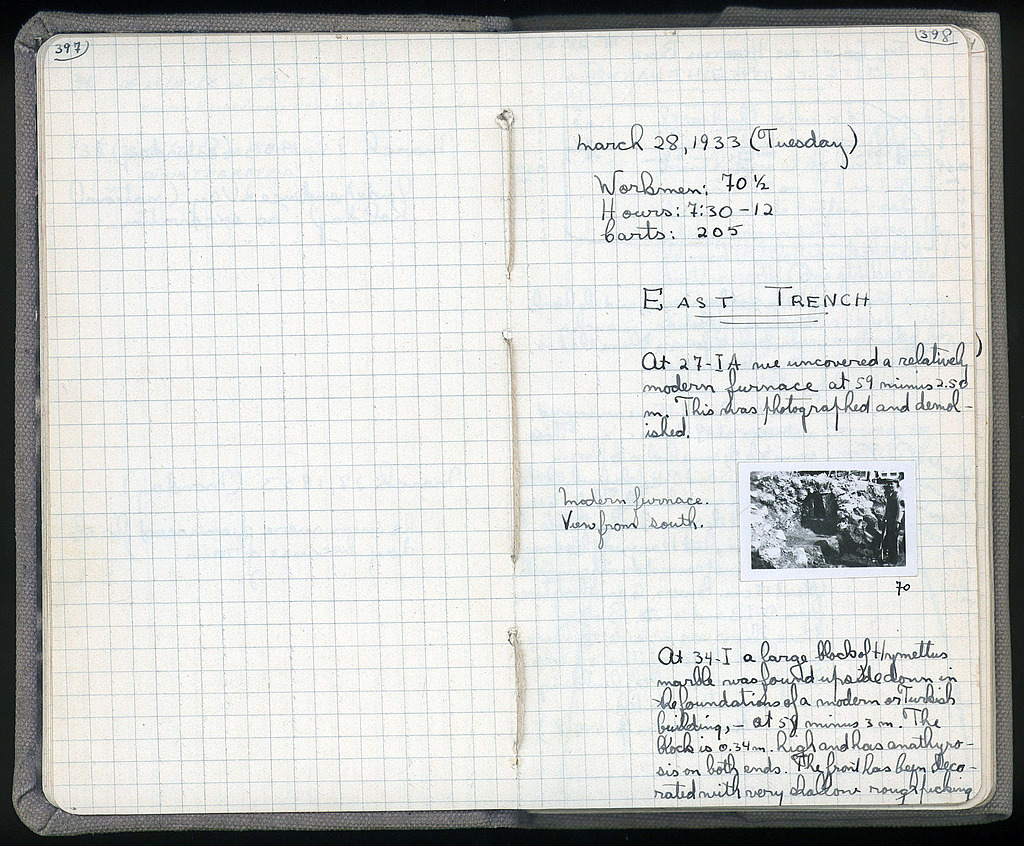 397
398
March 28, 1933 (Tuesday)
Workmen: 70 ½
Hours: 7:30-12
Carts: 205
EAST TRENCH
At 27-IA we uncovered a relatively
modern furnace at 59 minus 2.50
m. This was photographed and demol-
ished.
Modern furnace.
View from south.
70
At 34-I a large block of Hymettus
marble was found upside down in
the foundations of a modern or Turkish
building, - at 59 minus 3 m. The
block is 0.34 m. high and has anathyro-
sis on both ends. The front has been deco-
rated with very shallow rough picking